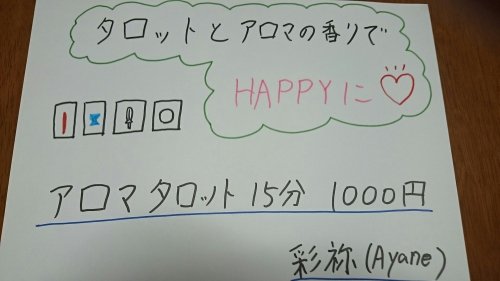 タロットとアロマの香りで
HAPPYに♡
アロマタロット 15分 1000円
彩祢(Ayane)